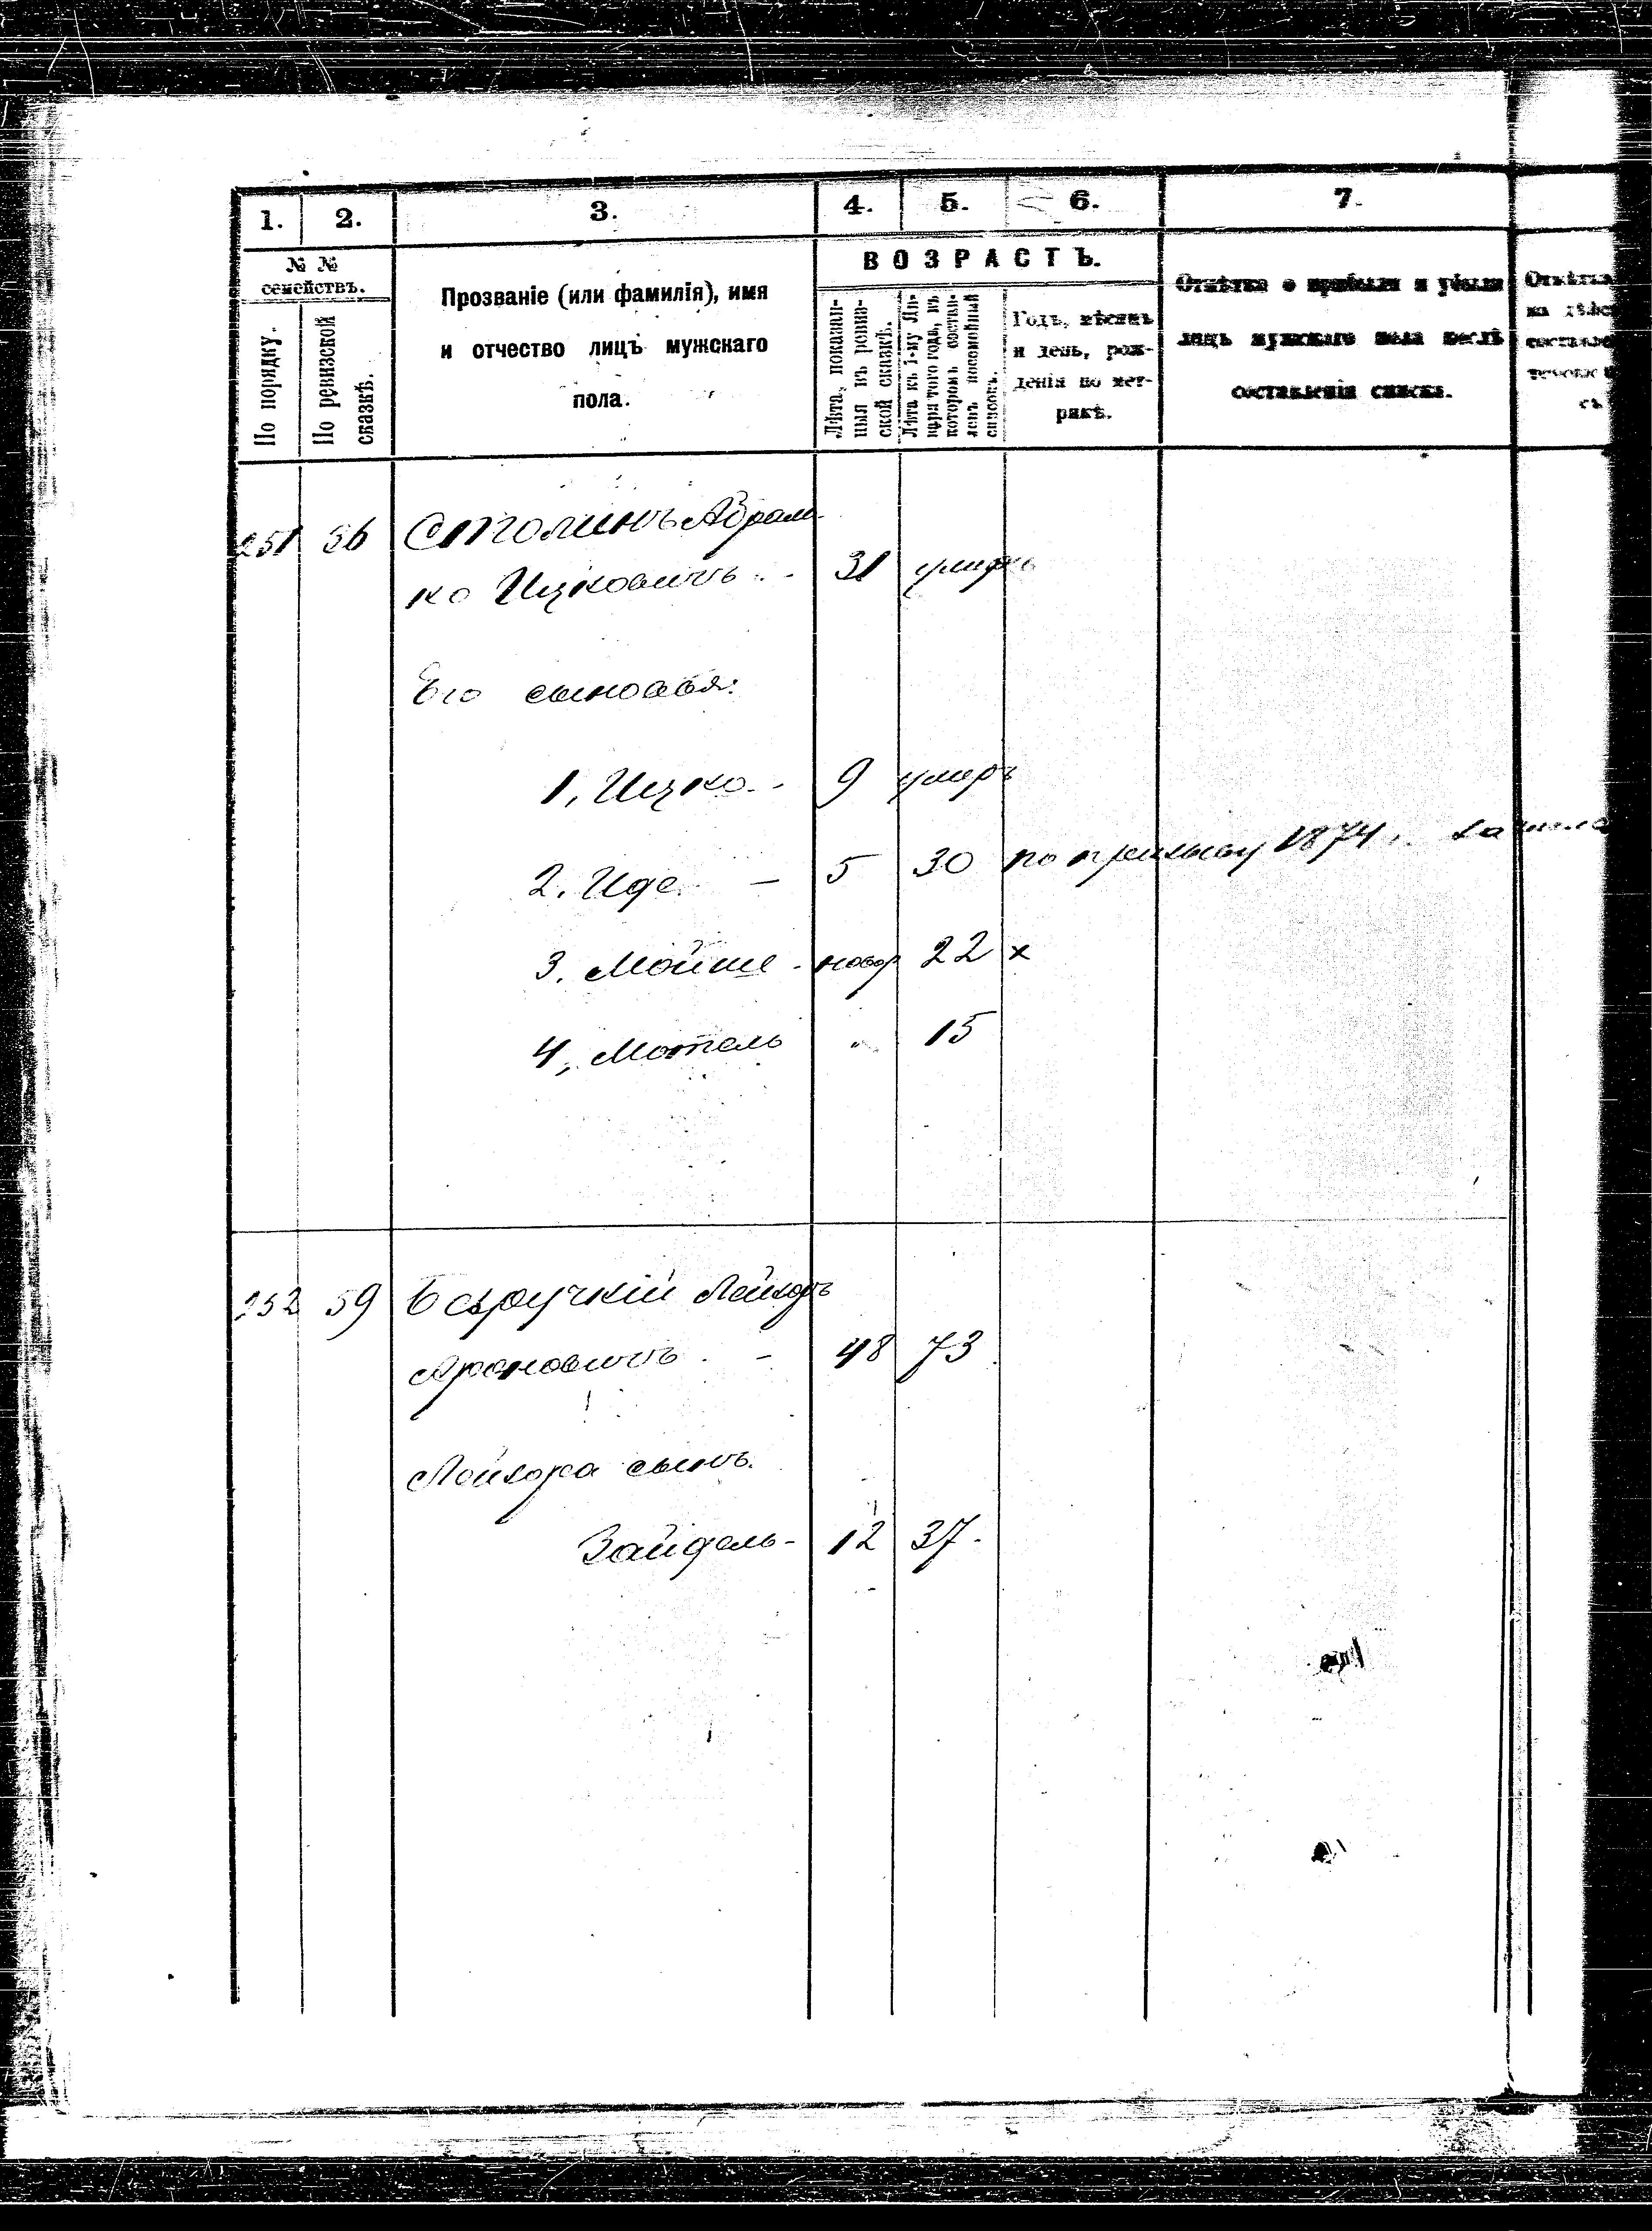 1.
2.
3.
4.
5.
6.
7.
№ №
семействъ.
По порядку.
По ревизской
сказкѣ.
Прозваніе (или фамилія), имя
и отчество лицъ мужскаго
пола.
ВОЗРАСТЪ.
Лѣта, показан-
ныя въ ревиз-
ской сказкѣ.
Лѣта къ 1-му Ян-
варя того года, въ
которомъ состав-
ленъ посемейный
списокъ.
Годъ, мѣсяцъ
и день, рож-
денія по мет-
рикѣ.
Отмѣтка о прибыли и убыли
лицъ мужскаго пола послѣ
составленія списка.
Отмѣтка
251 56 Столинъ Абрам-
ко Ицковичъ 31 умеръ
Его сыновья:
1, Ицко 9 умеръ
2, Иде 5 30 по призыву 1874
3, Мойше новор 22 х
4, Мотель " 15
252 59 Овручкій Лейзоръ
Ароновичъ 48 73
Лейзора сынъ
Зайдель 12 37